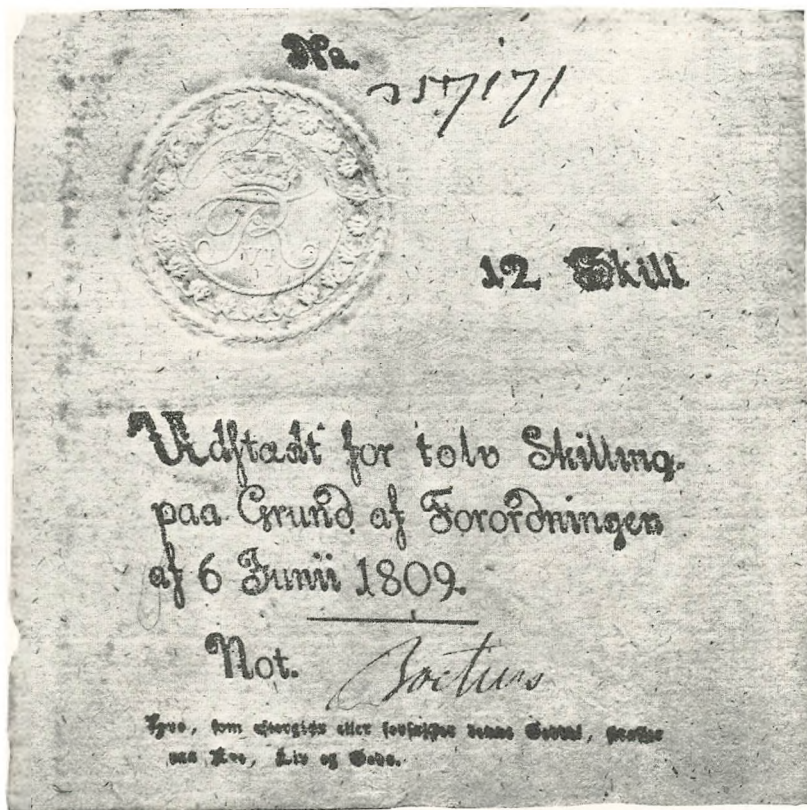 No.
257171
FR
VI
12 Skill
Udstadt for tolv Skilling.
paa Grund af Forordningen
af 6 Junii 1809.
Not. Boetius
Hvo, som eftergiør eller forfalsker denne Seddel, straffes
paa Ære, Liv og Gods.